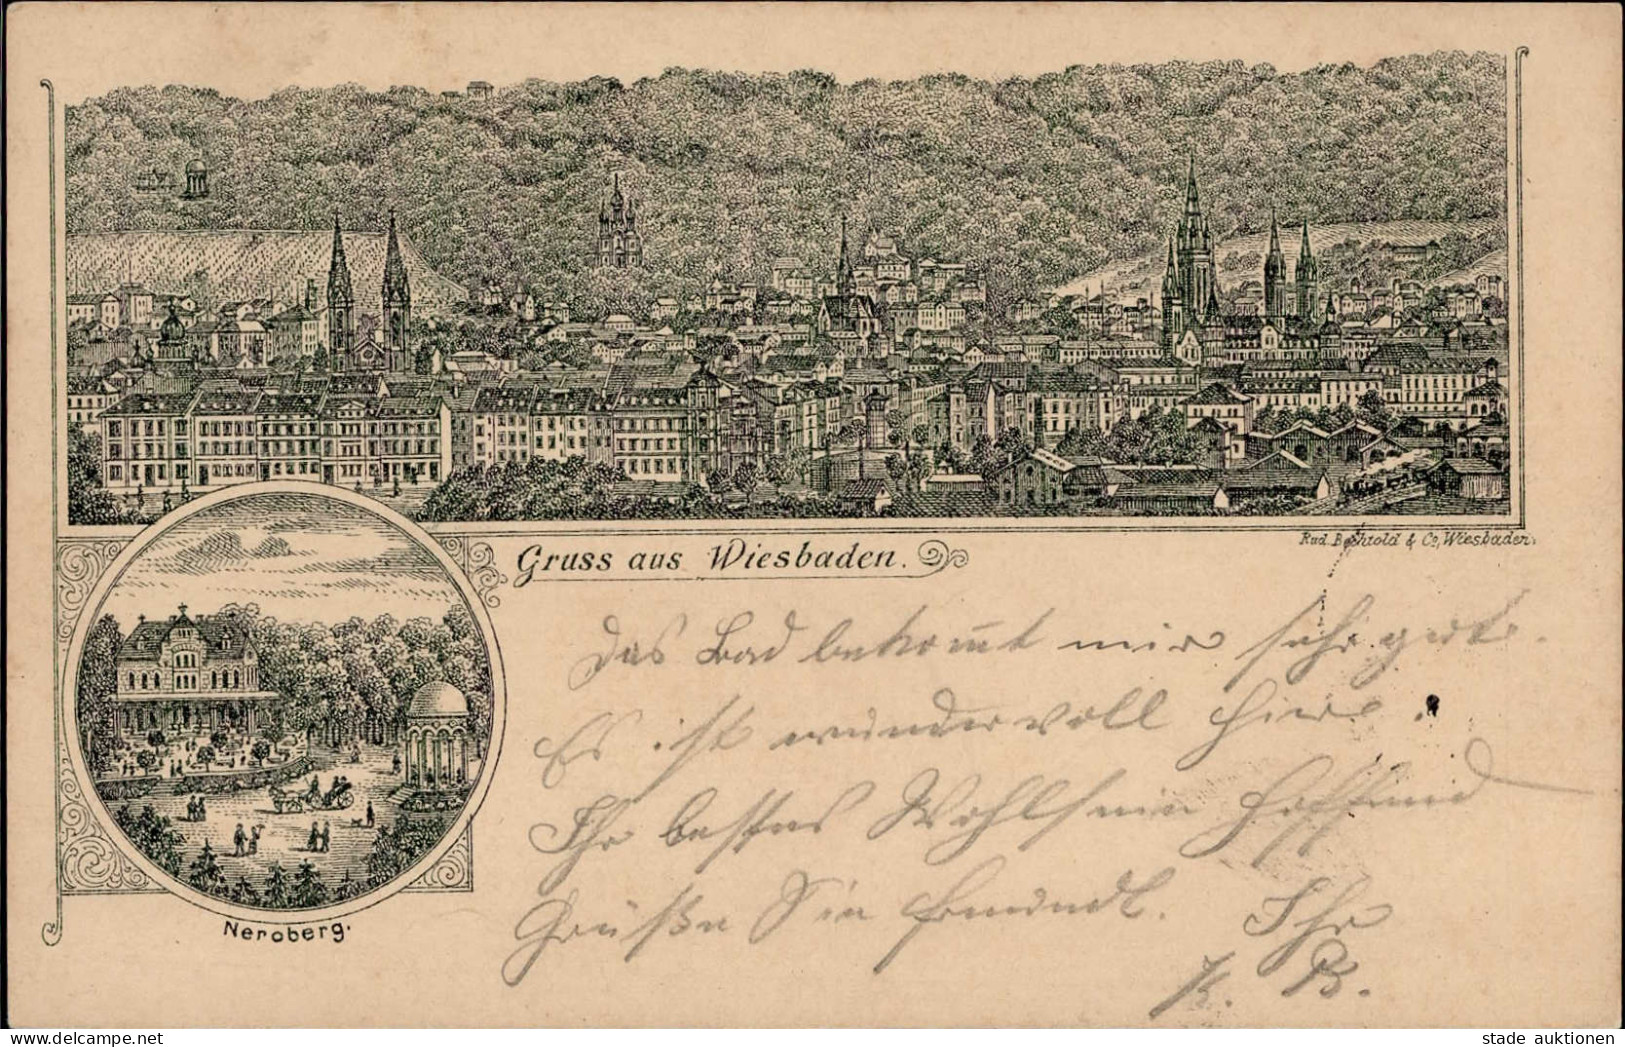 Rud. Bechtold & Co, Wiesbaden.
Gruss aus Wiesbaden.
Das Bad bekommt mir sehr gut.
Es ist wundervoll hier.
Ihr bestes Wohlsein hoffend
Grüßen Sie freundl. Ihr
B.
Neroberg.
stade auktionen